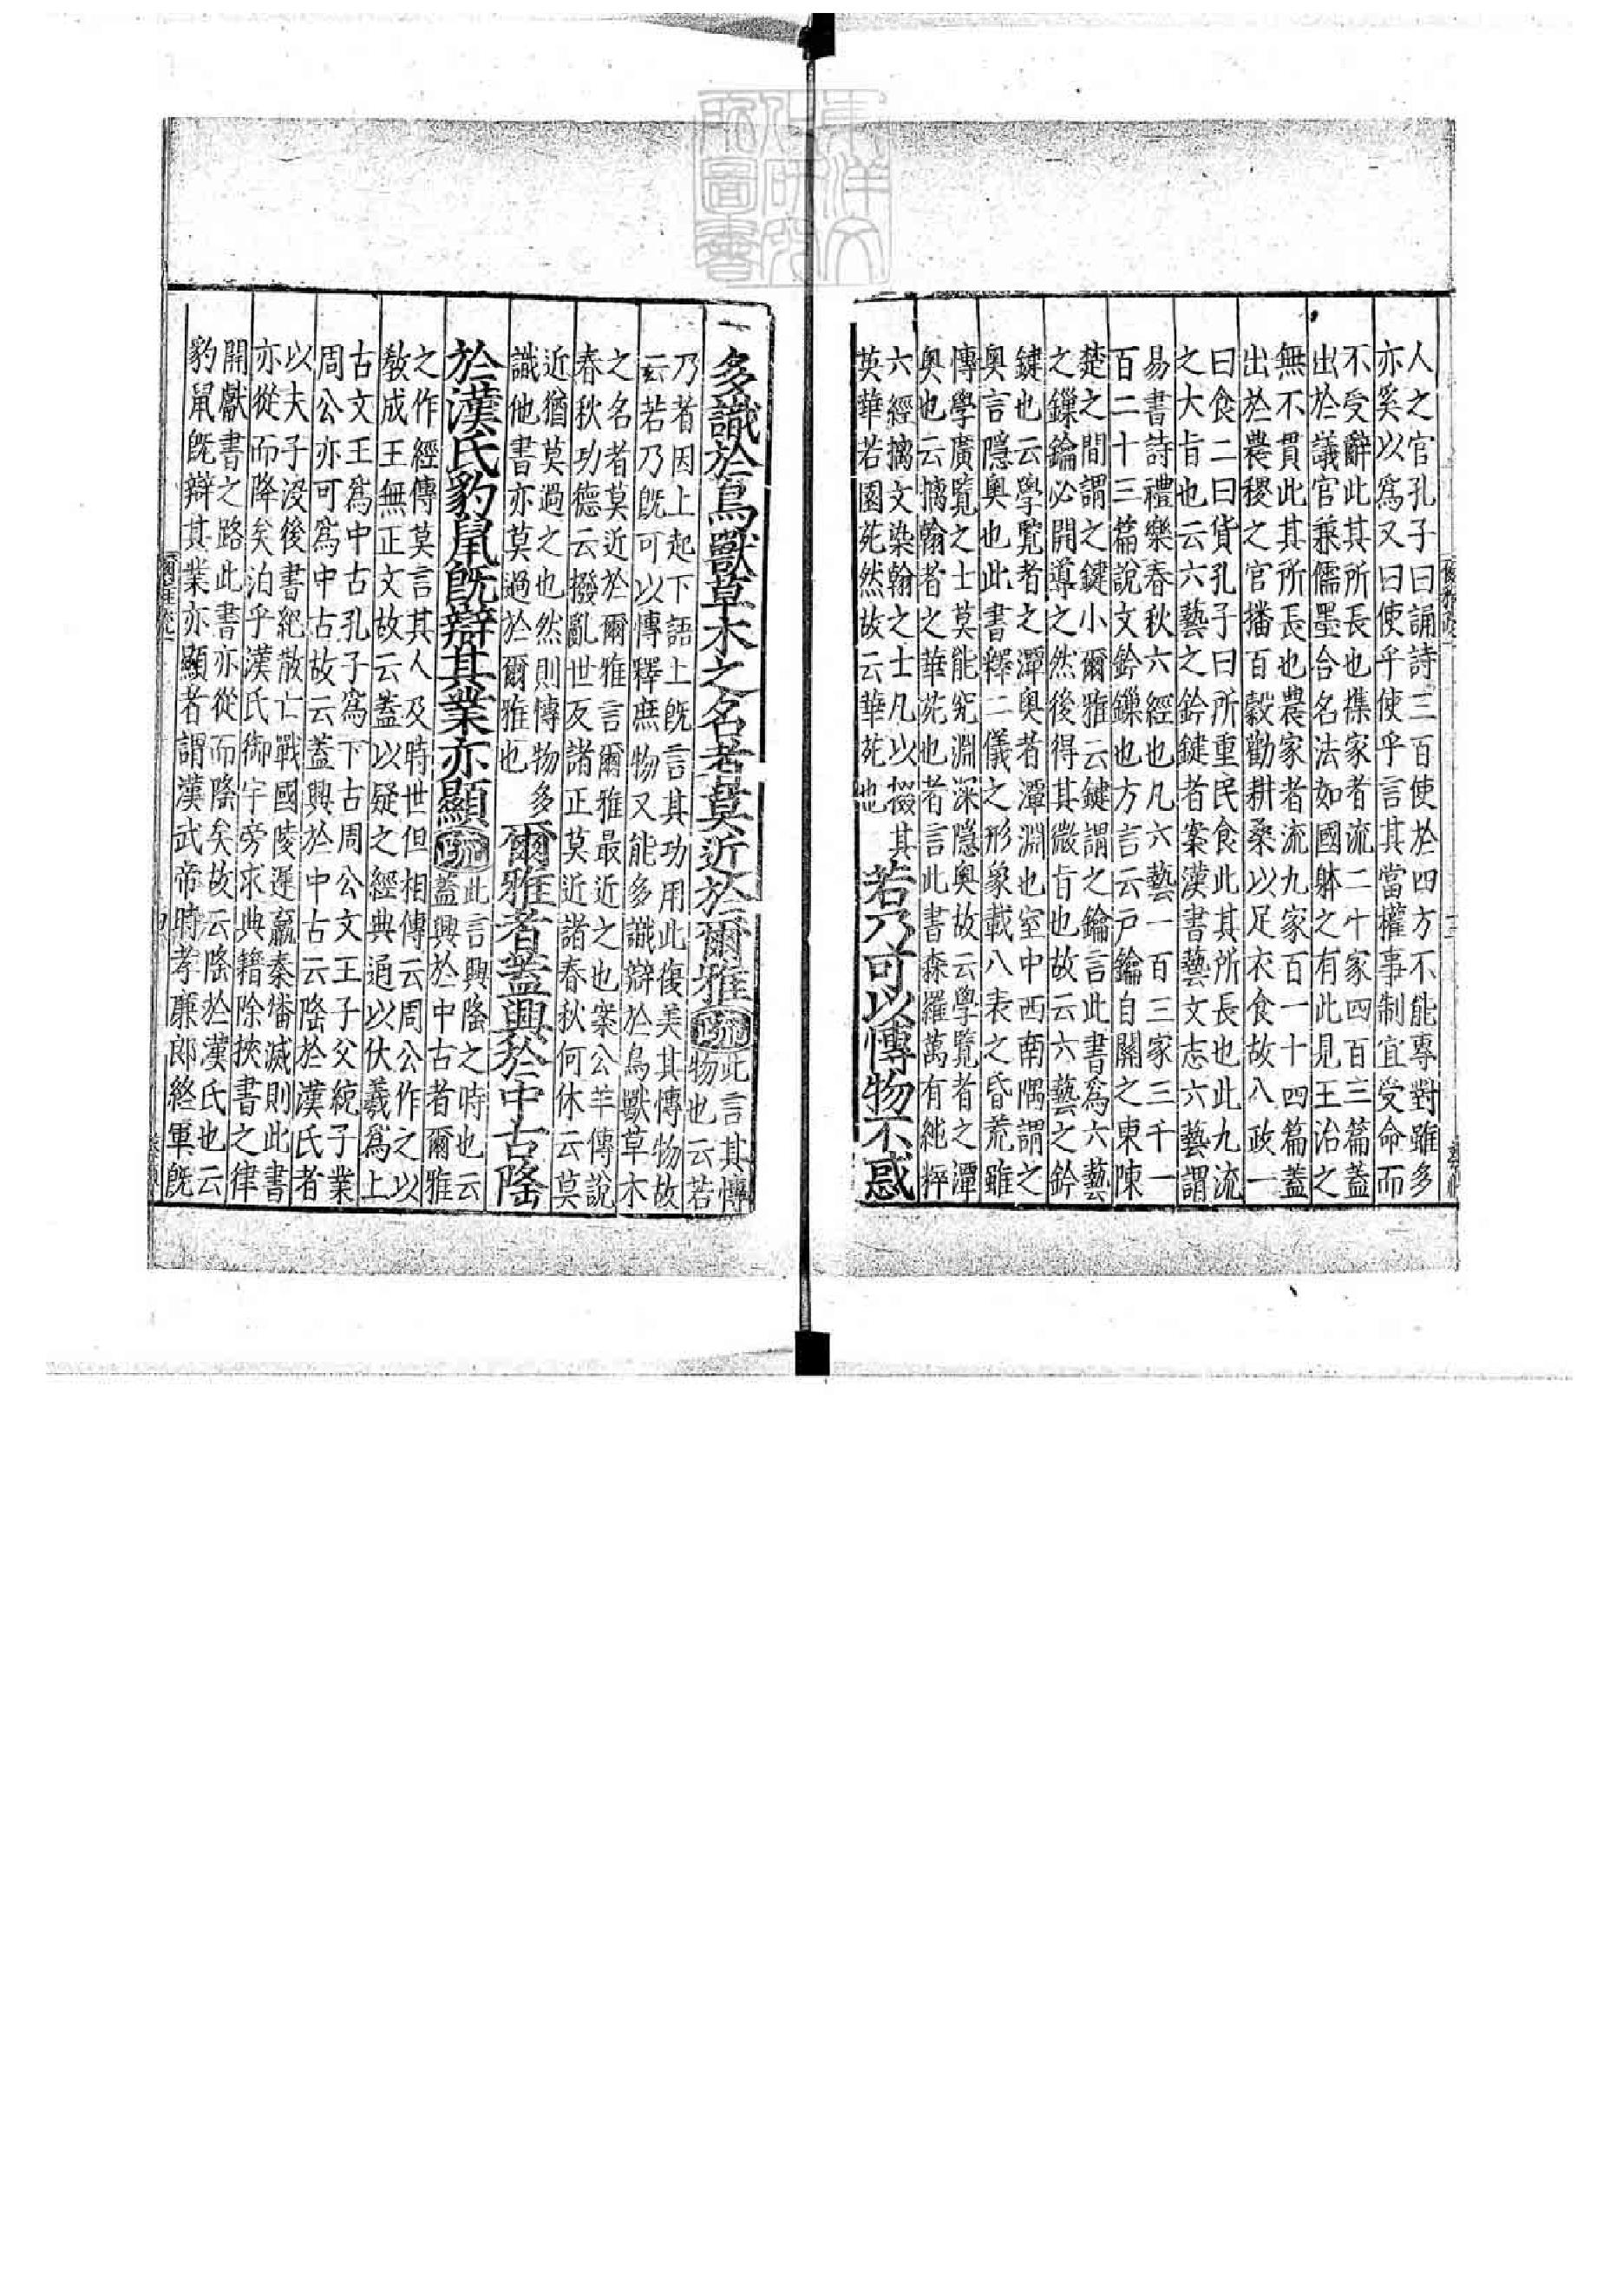 人之官孔子曰誦詩三百使於四方不能專對雖多
亦奚以爲又曰使乎使乎言其當權事制宜受命而
不受辭此其所長也襍家者流二十家四百三篇蓋
出於議官兼儒墨合名法如國躰之有此見王治之
無不貫此其所長也農家者流九家百一十四篇蓋
出於農稷之官播百穀勸耕桑以足衣食故八政一
曰食二曰貨孔子曰所重民食此其所長也此九流
之大旨也云六藝之鈐鍵者案漢書藝文志六藝謂
易書詩禮樂春秋六經也凡六藝一百三家三千一
百二十三篇說文鈐鏁也方言云戶鑰自關之東陳
楚之間謂之鍵小爾雅云鍵謂之鑰言此書爲六藝
之鏁鑰必開導之然後得其微旨也故云六藝之鈐
鍵也云學覽者之潭奧者潭淵也室中西南隅謂之
奧言隱奧也此書釋二儀之形象載八表之昏荒雖
博學廣覽之士莫能究淵深隱奧故云學覽者之潭
奧也云摛翰者之華苑也者言此書森羅萬有純粹
六經摛文染翰之士凡以掇其
英華若園苑然故云華苑也
若乃可以博物不惑
多識於鳥獸草木之名者莫近於爾雅
疏
此言其博
物也云若
乃者因上起下語上旣言其功用此復美其博物故
云若乃旣可以博釋庶物又能多識辯於鳥獸草木
之名者莫近於爾雅言爾雅最近之也案公羊傳說
春秋功德云撥亂世反諸正莫近諸春秋何休云莫
近猶莫過之也然則博物多
識他書亦莫過於爾雅也
爾雅者蓋興於中古隆
於漢氏豹鼠旣辯其業亦顯
疏
此言興隆之時也云
蓋興於中古者爾雅
之作經傳莫言其人及時世但相傳云周公作之以
敎成王無正文故云蓋以疑之經典通以伏羲爲上
古文王爲中古孔子爲下古周公文王子父統子業
周公亦可爲中古故云蓋興於中古云隆於漢氏者
以夫子沒後書紀散亡戰國陵遲嬴秦燔滅則此書
亦從而降矣洎乎漢氏御宇旁求典籍除挾書之律
開獻書之路此書亦從而隆矣故云隆於漢氏也云
豹鼠旣辯其業亦顯者謂漢武帝時孝廉郎終軍旣